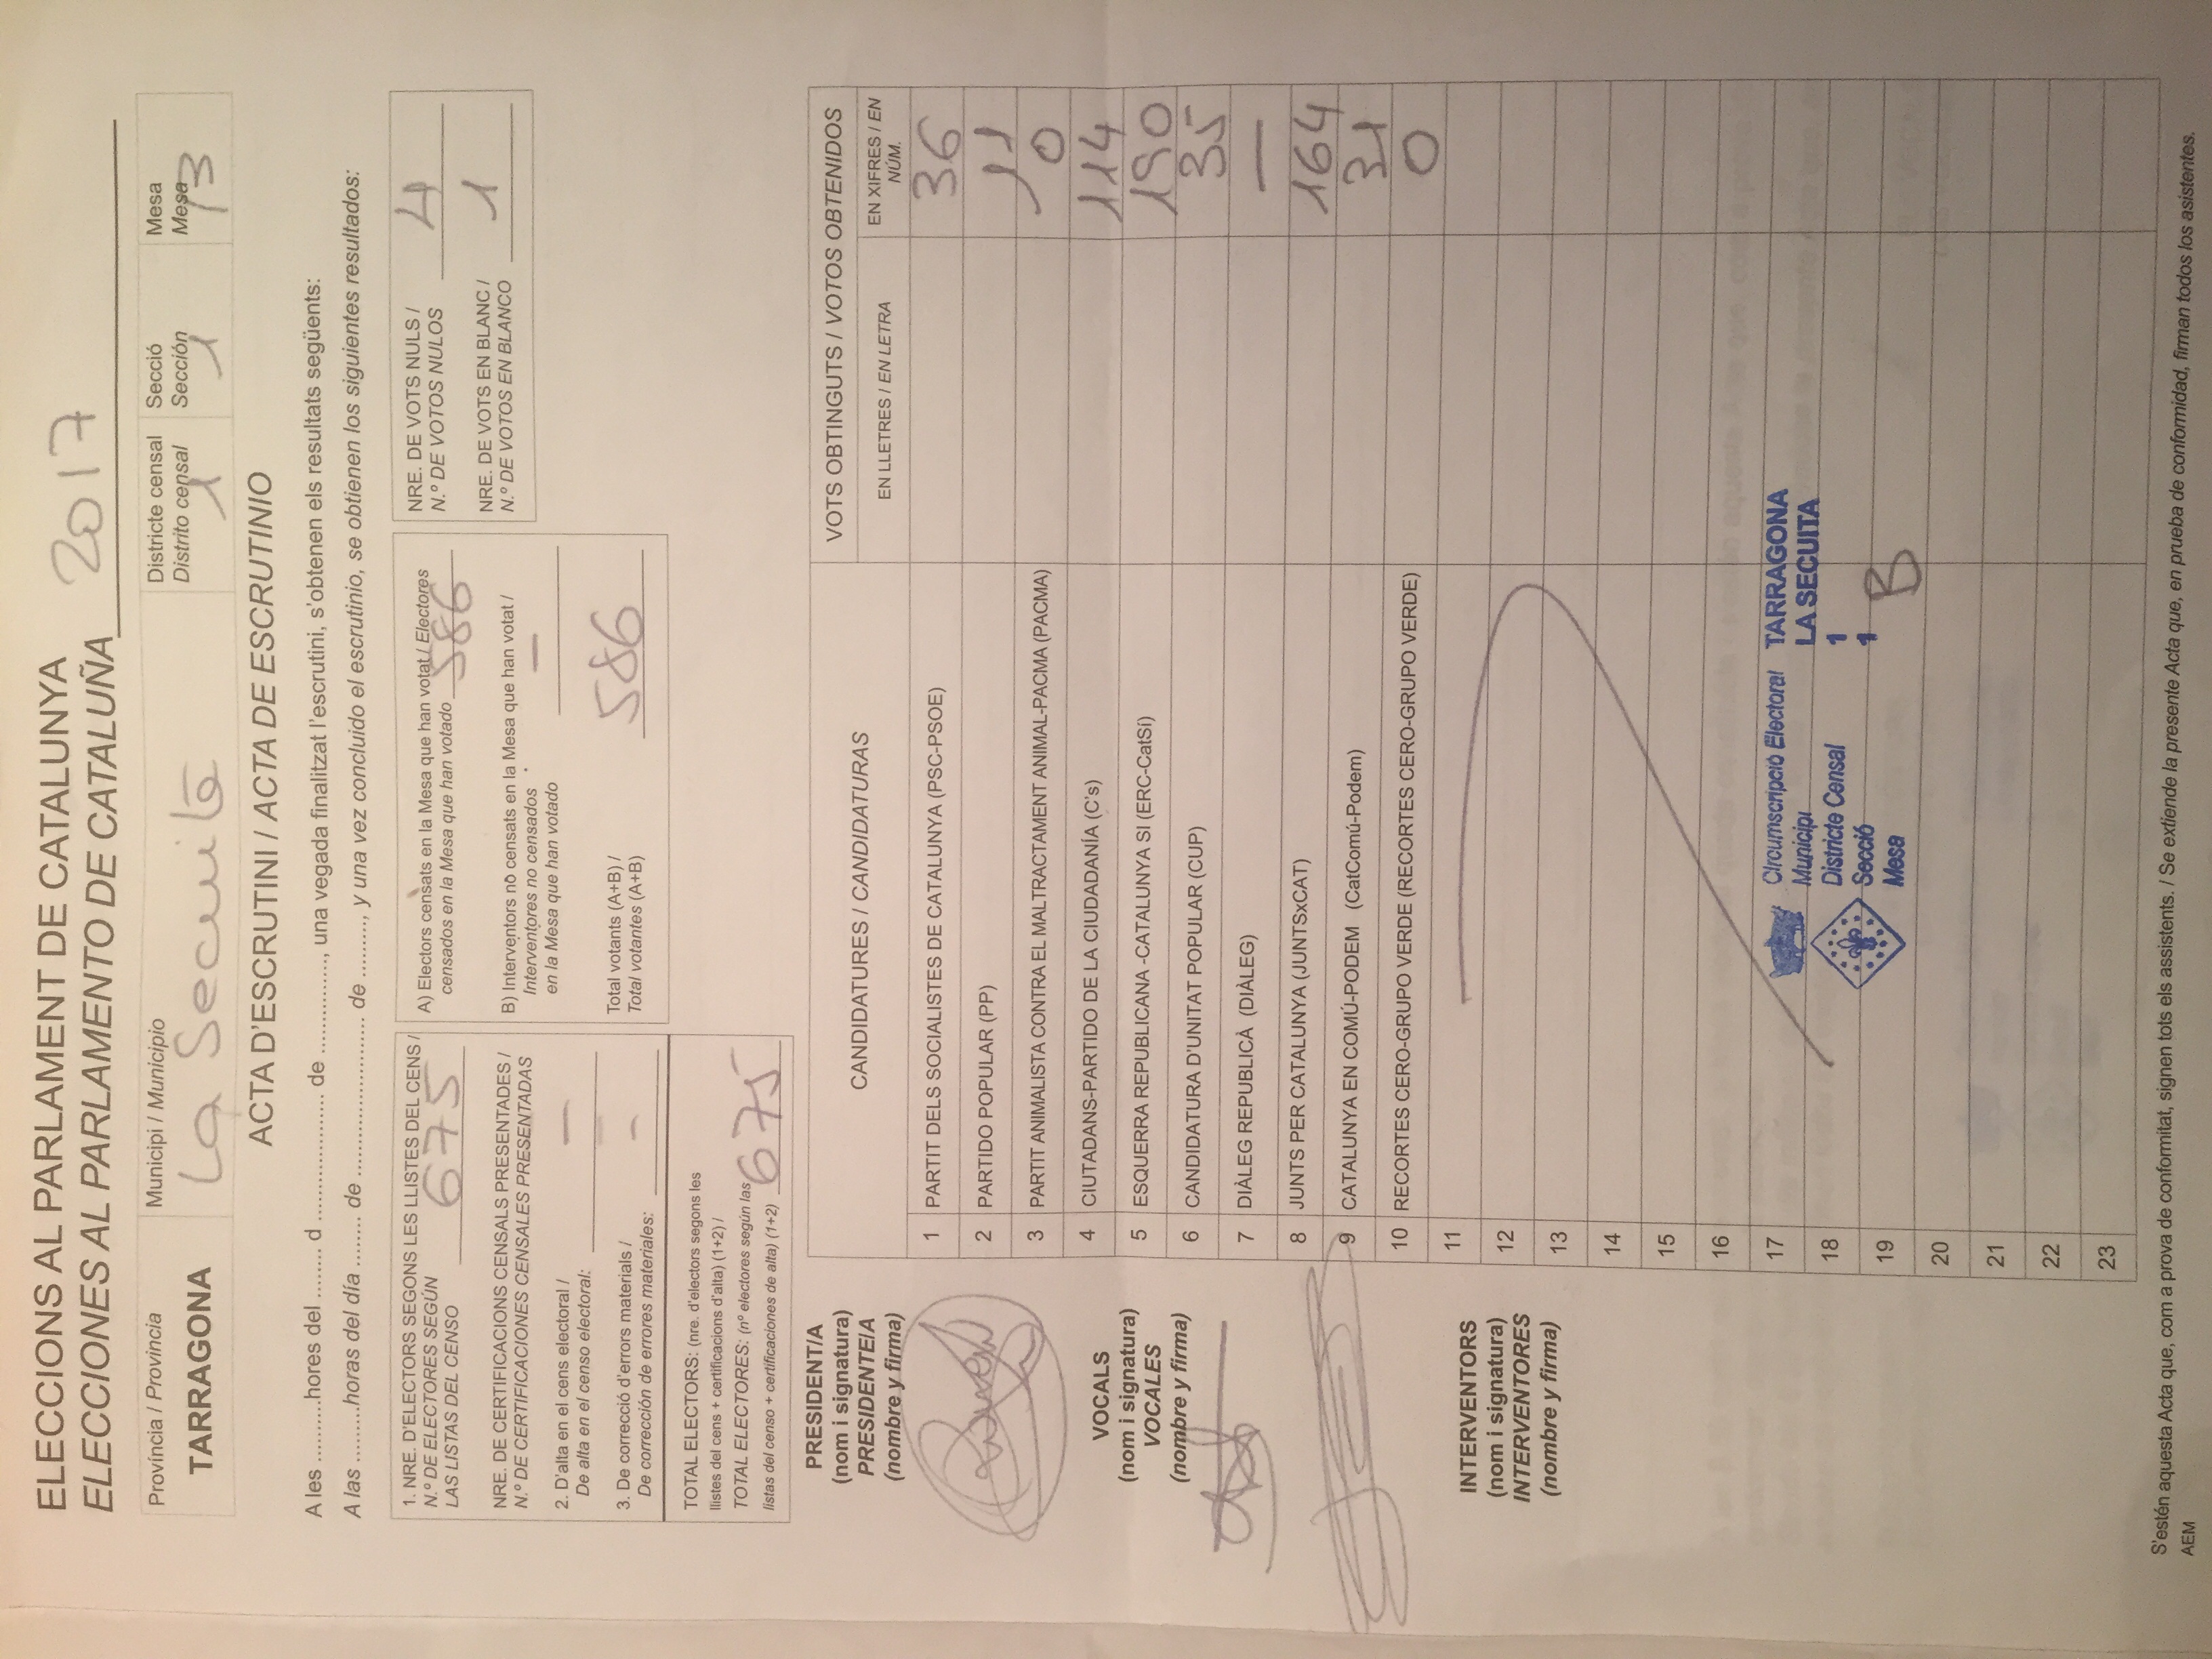 ELECCIONS AL PARLAMENT DE CATALUNYA
ELECCIONES AL PARLAMENTO DE CATALUÑA 2017
Província / Provincia
TARRAGONA
Municipi / Municipio
La Secuita
Districte censal
Distrito censal
1
Secció
Sección
1
Mesa
Mesa
B
ACTA D'ESCRUTINI / ACTA DE ESCRUTINIO
A les ..........hores del ........ d .................... de ..............., una vegada finalitzat l'escrutini, s'obtenen els resultats següents:
A las .........horas del día ........ de ......................... de ........., y una vez concluido el escrutinio, se obtienen los siguientes resultados:
1. NRE. D'ELECTORS SEGONS LES LLISTES DEL CENS /
N.º DE ELECTORES SEGÚN
LAS LISTAS DEL CENSO 675
NRE. DE CERTIFICACIONS CENSALS PRESENTADES /
N.º DE CERTIFICACIONES CENSALES PRESENTADAS
2. D'alta en el cens electoral /
De alta en el censo electoral: —
3. De correcció d'errors materials /
De corrección de errores materiales: —
TOTAL ELECTORS: (nre. d'electors segons les
llistes del cens + certificacions d'alta) (1+2) /
TOTAL ELECTORES: (nº electores según las
listas del censo + certificaciones de alta) (1+2) 675
A) Electors censats en la Mesa que han votat / Electores
censados en la Mesa que han votado 586
B) Interventors no censats en la Mesa que han votat /
Interventores no censados
en la Mesa que han votado —
Total votants (A+B) /
Total votantes (A+B) 586
NRE. DE VOTS NULS /
N.º DE VOTOS NULOS 4
NRE. DE VOTS EN BLANC /
N.º DE VOTOS EN BLANCO 1
PRESIDENT/A
(nom i signatura)
PRESIDENTE/A
(nombre y firma)
VOCALS
(nom i signatura)
VOCALES
(nombre y firma)
INTERVENTORS
(nom i signatura)
INTERVENTORES
(nombre y firma)
CANDIDATURES / CANDIDATURAS
VOTS OBTINGUTS / VOTOS OBTENIDOS
EN LLETRES / EN LETRA
EN XIFRES / EN
NÚM.
1 PARTIT DELS SOCIALISTES DE CATALUNYA (PSC-PSOE) 36
2 PARTIDO POPULAR (PP) 11
3 PARTIT ANIMALISTA CONTRA EL MALTRACTAMENT ANIMAL-PACMA (PACMA) 0
4 CIUTADANS-PARTIDO DE LA CIUDADANÍA (C's) 114
5 ESQUERRA REPUBLICANA -CATALUNYA SI (ERC-CatSí) 190
6 CANDIDATURA D'UNITAT POPULAR (CUP) 35
7 DIÀLEG REPUBLICÀ (DIÀLEG) —
8 JUNTS PER CATALUNYA (JUNTSxCAT) 164
9 CATALUNYA EN COMÚ-PODEM (CatComú-Podem) 31
10 RECORTES CERO-GRUPO VERDE (RECORTES CERO-GRUPO VERDE) 0
11
12
13
14
15
16
17
18
19
20
21
22
23
Circumscripció Electoral TARRAGONA
Municipi LA SECUITA
Districte Censal 1
Secció 1
Mesa B
S'estén aquesta Acta que, com a prova de conformitat, signen tots els assistents. / Se extiende la presente Acta que, en prueba de conformidad, firman todos los asistentes.
AEM